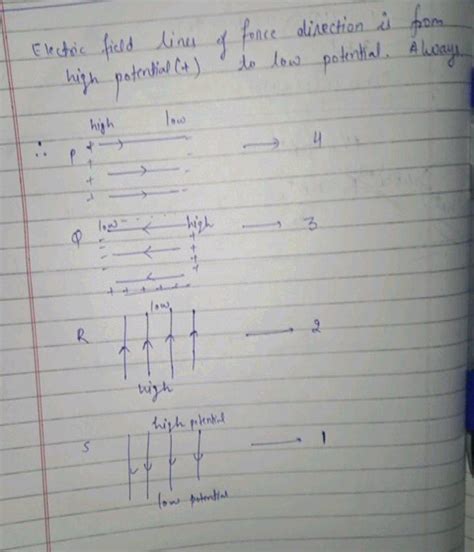 Electric field lines of force direction is from
high potential (+) to low potential. Always
high low
∴ P + - → 4
+ -
+ -
+ -
Q low - - high → 3
- +
- +
- +
+ + + + + +
low
R → 2
high
high potential
S → 1
low potential